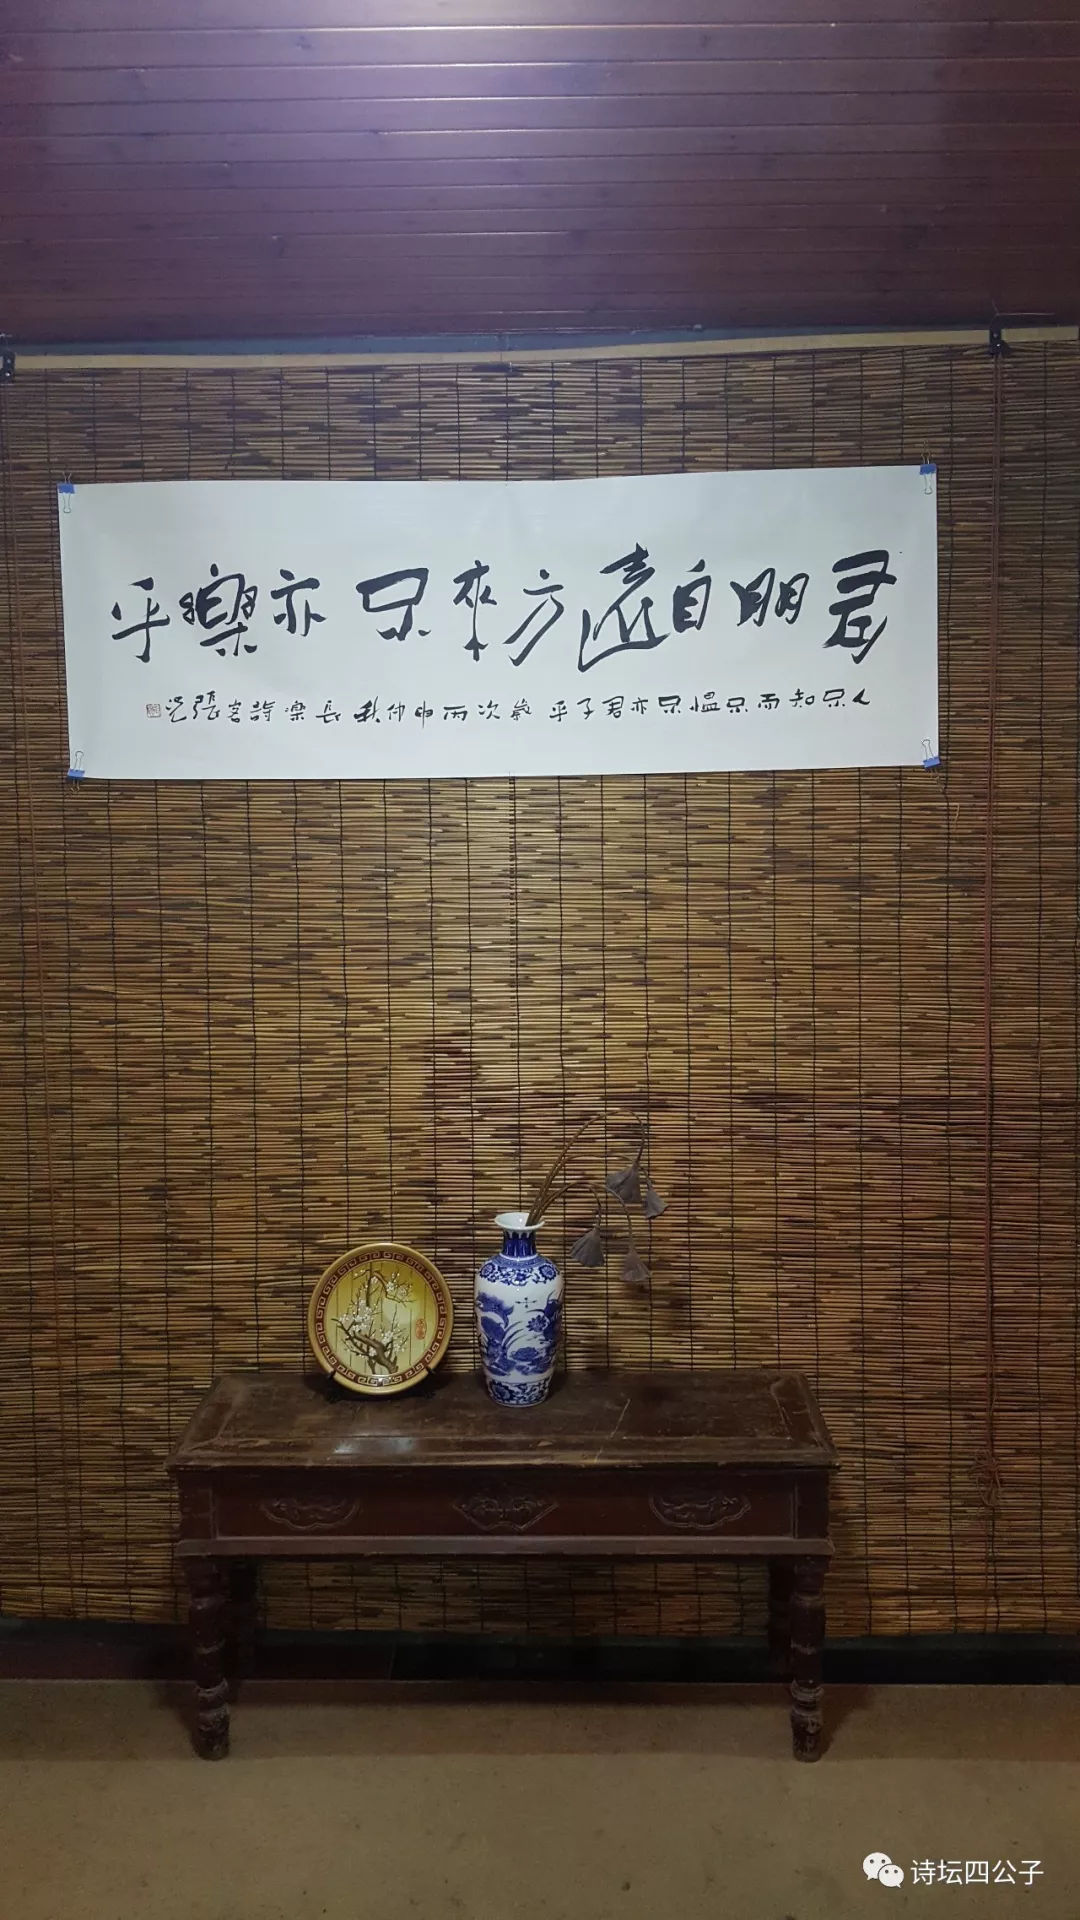 有朋自遠方來不亦樂乎
人不知而不愠不亦君子乎 歲次丙申仲秋 長樂 詩客 張
诗坛四公子